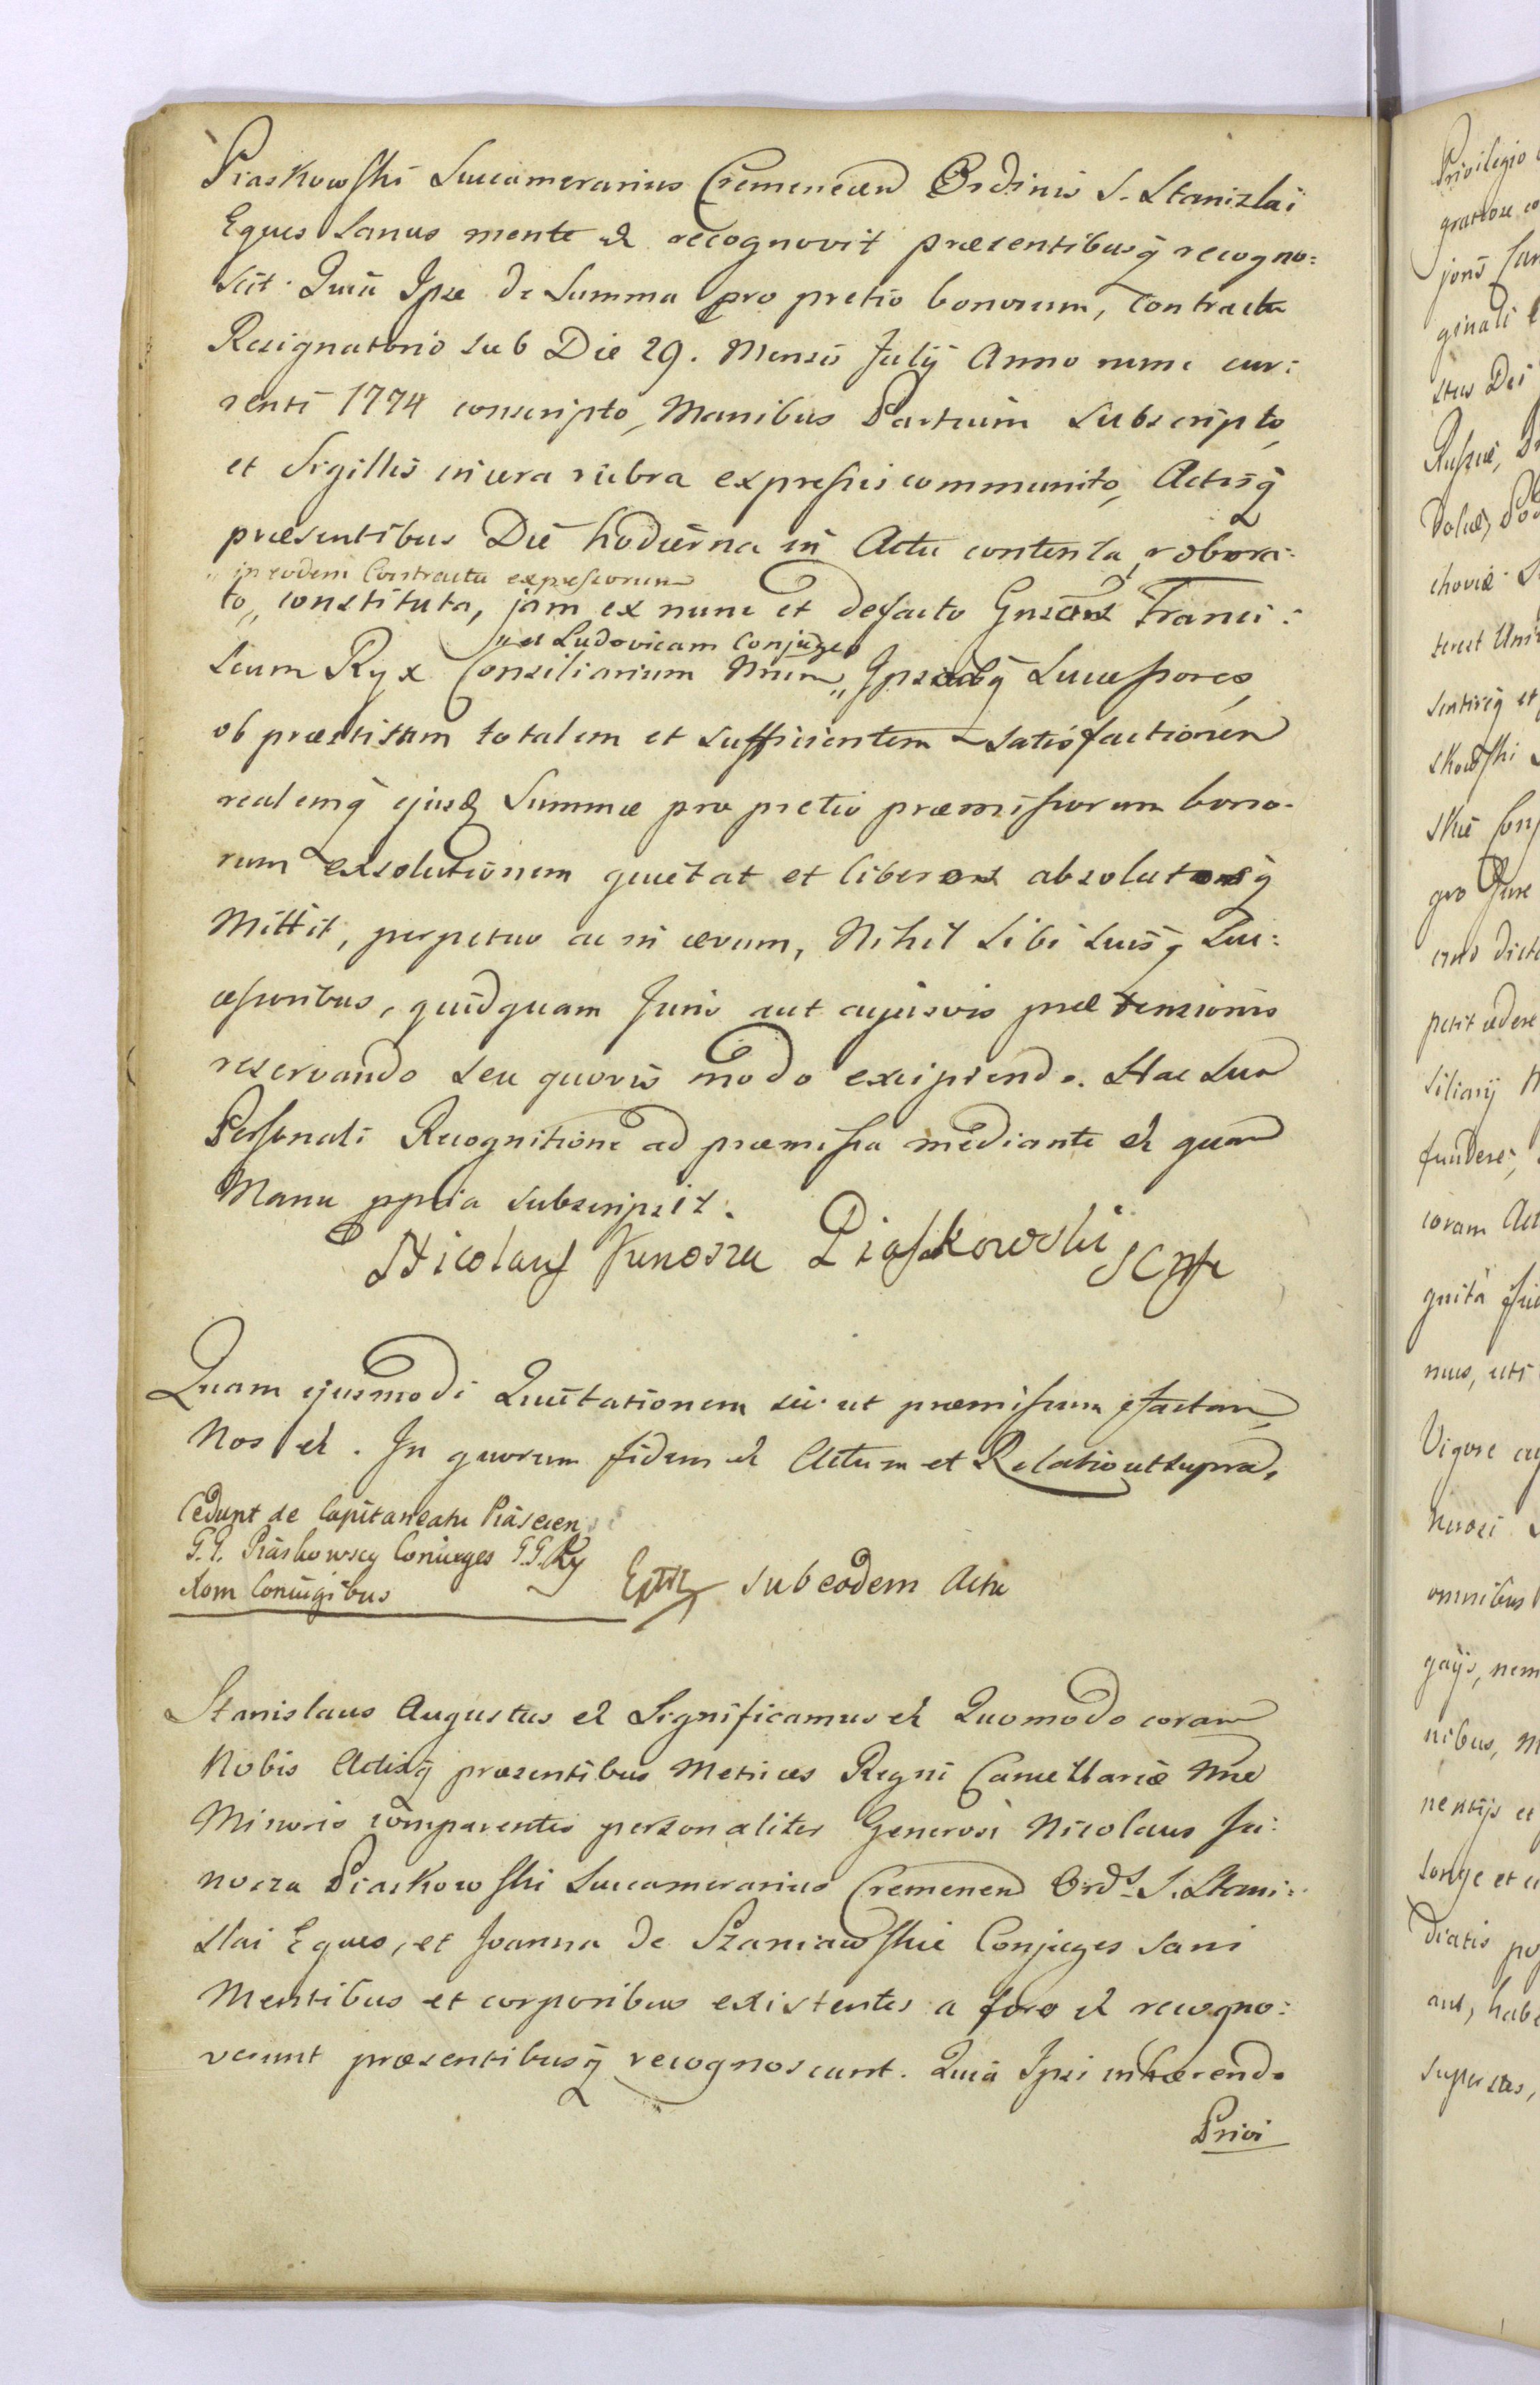 Piaskowski Succamerarius Cremenecen Ordinis S. Stanislai
Eques sanus mente et recognovit præsentibusq recogno:
scit. Quia Ipse de Summa pro pretio bonorum, Contractu
Resignatorio sub Die 29. Mensis Julij Anno nunc cur:
renti 1774 conscripto, Manibus Partium subscripto,
et Sigillis in cera rubra expressis communito, Actisq
præsentibus Die hodierna in Actu contenta, robora:
„ in eodem Contractu expressorum
to „ constituta, jam ex nunc et defacto Franci:
„ et Ludovicam Conjuges
scum Ryx Consiliarium Nrum „ Successores,
ob præstitam totalem et sufficientem satisfactionem
realemq ejusd Summæ pro pretio præmissorum bono-
rum exsolutionem quietat et liberos absolutosq
Mittit, perpetuo ac in ævum, Nihil Sibi Suisq Suc:
cessoribus, quidquam Juris aut cujusvis prætensionis
reservando seu quovis modo excipiendo. Hac Sua
Personali Recognitione ad præmissa mediante et quam
Manu ppria subscripsit.
Nicolaus Junosza Piaskowski
Quam ejusmodi Quietationem sic ut præmissum factam,
Nos et. In quorum fidem et Actum et Relatio ut supra.
Cedunt de Capitaneatu Piasecen
G.G. Piaskowscy Coniuges G.G. Ry
xom Coniugibus
sub eodem Actu
Stanislaus Augustus et Significamus et Quomodo coram
Nobis Actisq præsentibus Metrices Regni Cancellariæ
Minoris comparentes personaliter Generosi Nicolaus Ju:
nosza Piaskowski Succamerarius Cremenen Ords S. Stani:
slai Eques, et Joanna de Szaniawskie Conjuges sani
Mentibus et corporibus existentes a foro et recogno:
verunt præsentibusq recognoscunt. Quia Ipsi inhærendo
Privi
Privilegio
ginali
stus Dei
Russiæ,
choviæ
skowski
pro Jure
petit cedere
siliarij
fundere,
coram Act
mus, uti
Vigore
omnibus
nibus,
longe et
diatis
superstes,